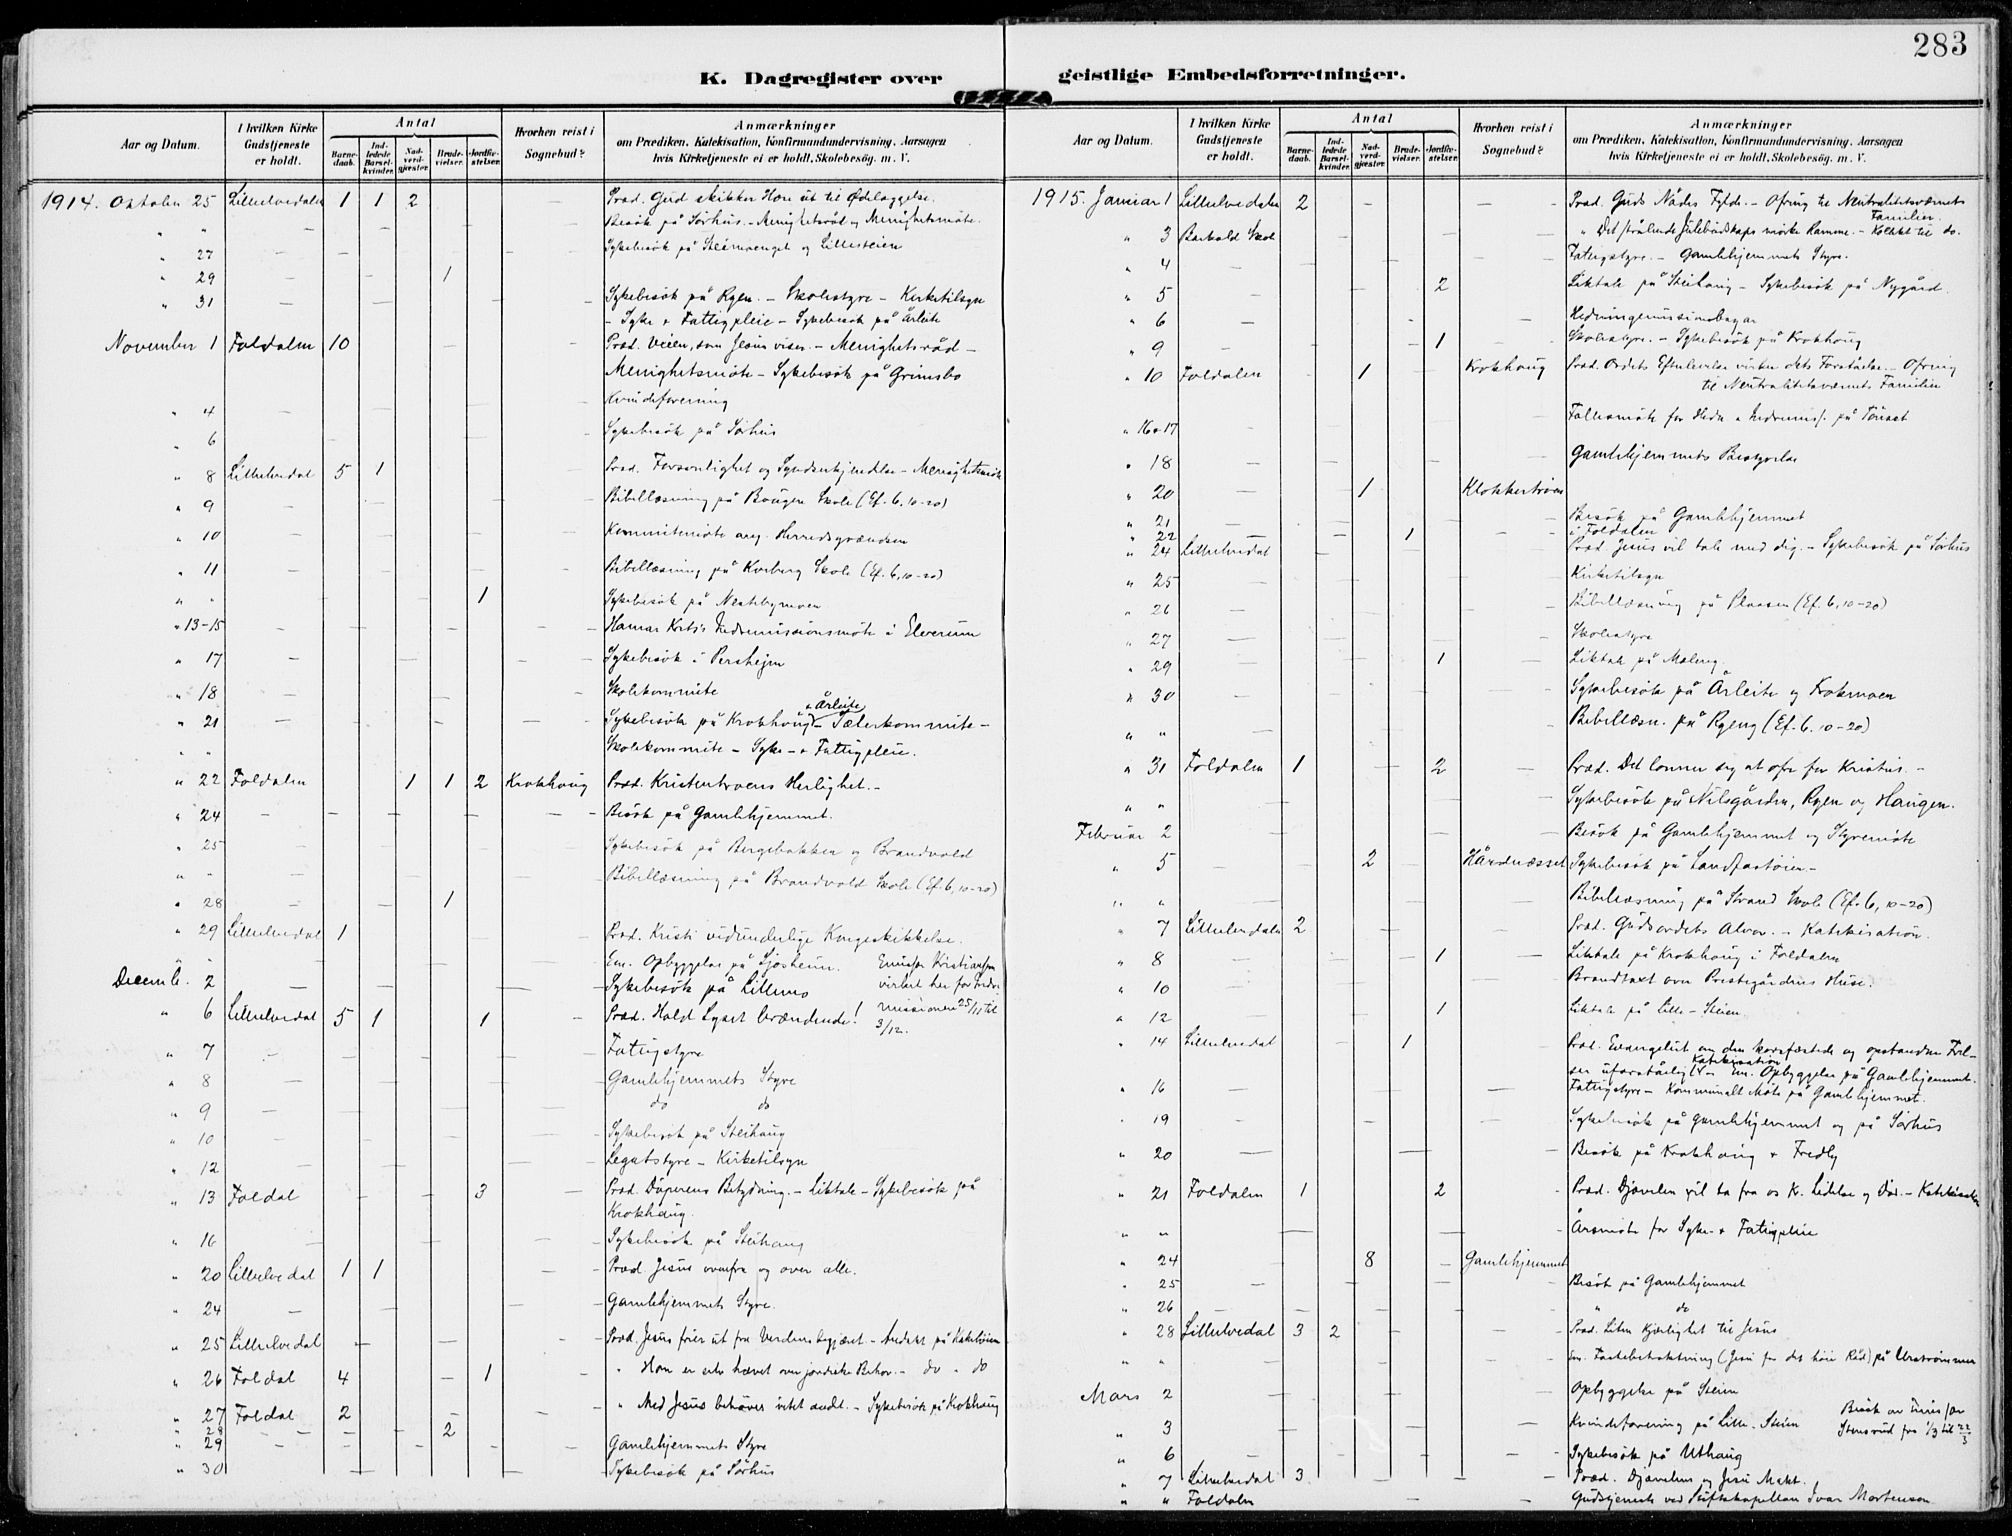 283
K. Dagregister over geistlige Embedsforretninger.
Aar og Datum.
I hvilken Kirke Gudstjeneste er holdt.
Antal
Barnedaab.
Indledede Barselkvinder.
Nadverdgjæster.
Brudevielser.
Jordfæstelser.
Hvorhen reist i Sognebud?
Anmærkninger
om Prædiken, Katekisation, Konfirmandundervisning, Aarsagen
hvis Kirketjeneste ei er holdt, Skolebesög. m. V.
1914. Oktober 25 Lillelvedalen 1 1 2 — Præd. Gud skikker Hore ut til Ødelæggelse.
" " — Besök på Sørhus. – Menighetsråd og Menighetsmöte.
" 27 — Sykebesök på Steimoenget og Lillesteien
" 29 — 1
" 31 — Sykebesök på Ryen. – Skolestyre – Kirketilsyn
– Syke & Fattigpleie – Sykebesök på Årleite
November 1 Foldalen 10 Præd. Veien, som Jesus viser. – Menighetsråd –
Menighetsmöte – Sykebesök på Grimsbo
" 4 — Kvindeforening
" 6 — Sykebesök på Sørhus
" 8 Lillelvedal 5 1 Præd. Forsonlighet og Syndserkjendelse – Menighetsmöte
" 9 — Bibellæsning på Bangen Skole (Ef. 6, 10-20)
" 10 — Kommitemöte ang. Herredsgrændsen
" 11 — Bibellæsning på Kveberg Skole (Ef. 6, 10-20)
" " 1 Sykebesök på Nestebymoen
" 13-15 — Hamar Krets's Indremissionsmöte i Elverum
" 17 — Sykebesök i Persheim
" 18 — Skolekommite
" 21 — Sykebesök på Krokhaug & Årleite – Sæterkommite –
" " Skolekommite – Syke- & Fattigpleie.
" 22 Foldalen 1 1 2 Krokhaug Præd. Kristentroens Herlighet. –
" 24 — Besök på Gamlehjemmet.
" 25 — Sykebesök på Bergebakken og Brandvold
" " — Bibellæsning på Brandvold Skole (Ef. 6, 10-20)
" 28 — 1
" 29 Lillelvedal 1 Præd. Kristi vidunderlige Kongeskikkelse.
" Em. Opbyggelse på Sjøsheim. Emissær Kristiansen
Decemb. 2 — Sykebesök på Lillemo virket her for Indre
" 6 Lillelvedal 5 1 1 Præd. Hold Lyset brændende! missionen 25/11 til
3/12.
" 7 — Fattigstyre
" 8 — Gamlehjemmets Styre
" 9 — do do
" 10 — Sykebesök på Steihaug
" 12 — Legatstyre – Kirketilsyn
" 13 Foldal 3 Præd. Döperens Betydning. – Liktale – Sykebesök på
Krokhaug.
" 16 — Sykebesök på Steihaug
" 20 Lillelvedal 1 1 Præd. Jesus ovenfra og over alle.
" 24 — Gamlehjemmets Styre.
" 25 Lillelvedal — Præd. Jesus frier ut fra Verdensbegjæret – Andakt på
" 26 Foldal 4 1 " Han er selv hævet over jordiske Behov. – do " do
" 27 Foldal 2 " Med Jesus behöver intet andet. – Sykebesök på Krokhaug
" 28 — 2
" 29 — Gamlehjemmets Styre
" 30 — Sykebesök på Sørhus
Aar og Datum.
I hvilken Kirke Gudstjeneste er holdt.
Antal
Barnedaab.
Indledede Barselkvinder.
Nadverdgjæster.
Brudevielser.
Jordfæstelser.
Hvorhen reist i Sognebud?
Anmærkninger
om Prædiken, Katekisation, Konfirmandundervisning, Aarsagen
hvis Kirketjeneste ei er holdt, Skolebesög. m. V.
1915. Januar 1 Lillelvedalen 2 — Præd. Guds Nådes Fylde. – Ofring til Neutralitetsværnets
Familier.
" 3 Barkald Skole " Det strålende Julebudskaps mörke Ramme. – Kollekt til do.
" 4 — Fattigstyre. – Gamlehjemmets Styre.
" 5 — 2 Liktale på Steihaug – Sykebesök på Nygård.
" 6 — Hedningemissionsbazar
" 9 — 1 Skolestyre. – Sykebesök på Krokhaug
" 10 Foldalen 1 Krokhaug Præd. Ordets Efterlevelse virker dets Forståelse. – Ofring
til Neutralitetsværnets Familier
" 16 & 17 Fællesmöte for Hedn. & Indremis. på Tönset
" 18 — Gamlehjemmets Bestyrelse
" 20 — 1 Klokkertröen
" 21 — Besök på Gamlehjemmet
" 22 — 1 i Foldalen
" 24 Lillelvedal Præd. Jesus vil tale med dig. – Sykebesök på Sørhus
" 25 — Kirketilsyn
" 26 — Bibellæsning på Plassen (Ef. 6, 10-20)
" 27 — Skolestyre
" 29 — 1 Liktale på Moeng.
" 30 — Sykebesök på Årleite og Krokmoen
" " — Bibellæsn. på Ryeng (Ef. 6, 10-20)
" 31 Foldalen 1 2 Præd. Det lönner sig at ofre for Kristus. –
" " Sykebesök på Nilsgården, Ryen og Haugen.
Februar 2 — Besök på Gamlehjemmet og Styremöte
" 5 — 2 Hårdnæsset Sykebesök på Sandfastöien –
" " Bibellæsning på Strand Skole (Ef. 6, 10-20)
" 7 Lillelvedalen 2 Præd. Gudsordets Alvor. – Katekisation.
" 8 — 1 Liktale på Krokhaug i Foldalen
" 10 — Brandtaxt over Prestegårdens Huse.
" 12 — 1 Liktale på Lille-Steien
" 14 Lillelvedal 1 Præd. Evangeliet om den korsfæstede og opstandne Frel-
ser uforståelig? – Katekisation Em. Opbyggelse på Gamlehjemmet.
" 16 — Fattigstyre – Kommunalt Möte på Gamlehjemmet.
" 19 — Sykebesök på Gamlehjemmet og på Sørhus
" 20 — Besök på Krokhaug & Fredly
" 21 Foldalen 1 2 Præd. Djævelen vil ta fra os Kr. Lidelse og Död. – Katekisation
" " — Årsmöte for Syke- & Fattigpleie
" 24 — 8 Gamlehjemmet
" 25 — Besök på Gamlehjemmet
" 26 — " do
" 28 Lillelvedal 3 2 Præd. Liten Kjærlighet til Jesus
" " Em. Fastebetraktning (Jesu for det höie Råd) på Urströmmen
Mars 2 — Opbyggelse på Steien
" 3 — Kvindeforening på Lille-Steien Besök av Emis/ær
Stensrud fra 1/3 til 22/3
" 6 — Sykebesök på Uthaug
" 7 Lillelvedal 3 Præd. Djævelens og Jesu Makt.
" " Foldalen — Gudstjeneste ved Stiftskapellan Ivar Mortenson